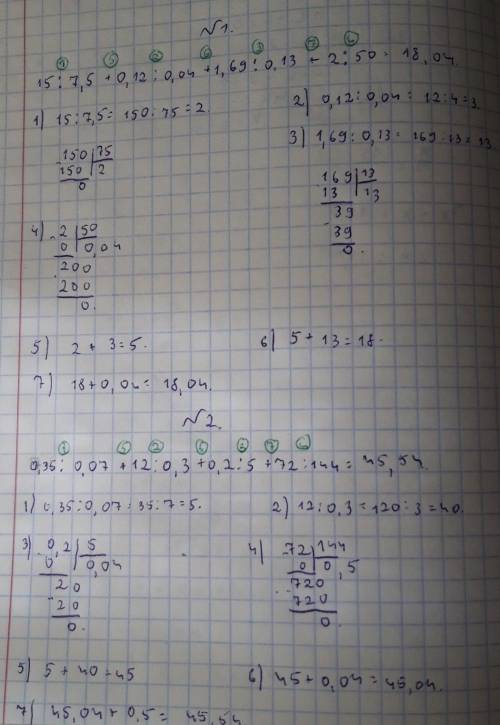 №1.
① ⑤ ② ⑥ ③ ⑦ ④
15 : 7,5 + 0,12 : 0,04 + 1,69 : 0,13 + 2 : 50 = 18,04.
1) 15 : 7,5 = 150 : 75 = 2
2) 0,12 : 0,04 = 12 : 4 = 3.
3) 1,69 : 0,13 = 169 : 13 = 13.
-150 | 75
150 | 2
0
-169 | 13
13 | 13
-39
39
0.
4) -2 | 50
0 | 0,04
-200
200
0.
5) 2 + 3 = 5.
6) 5 + 13 = 18.
7) 18 + 0,04 = 18,04.
№2.
① ⑤ ② ⑥ ③ ⑦ ④
0,35 : 0,07 + 12 : 0,3 + 0,2 : 5 + 72 : 144 = 45,54.
1) 0,35 : 0,07 = 35 : 7 = 5.
2) 12 : 0,3 = 120 : 3 = 40.
3) -0,2 | 5
0 | 0,04
-20
20
0.
4) -72 | 144
0 | 0,5
-720
720
0.
5) 5 + 40 = 45
6) 45 + 0,04 = 45,04.
7) 45,04 + 0,5 = 45,54